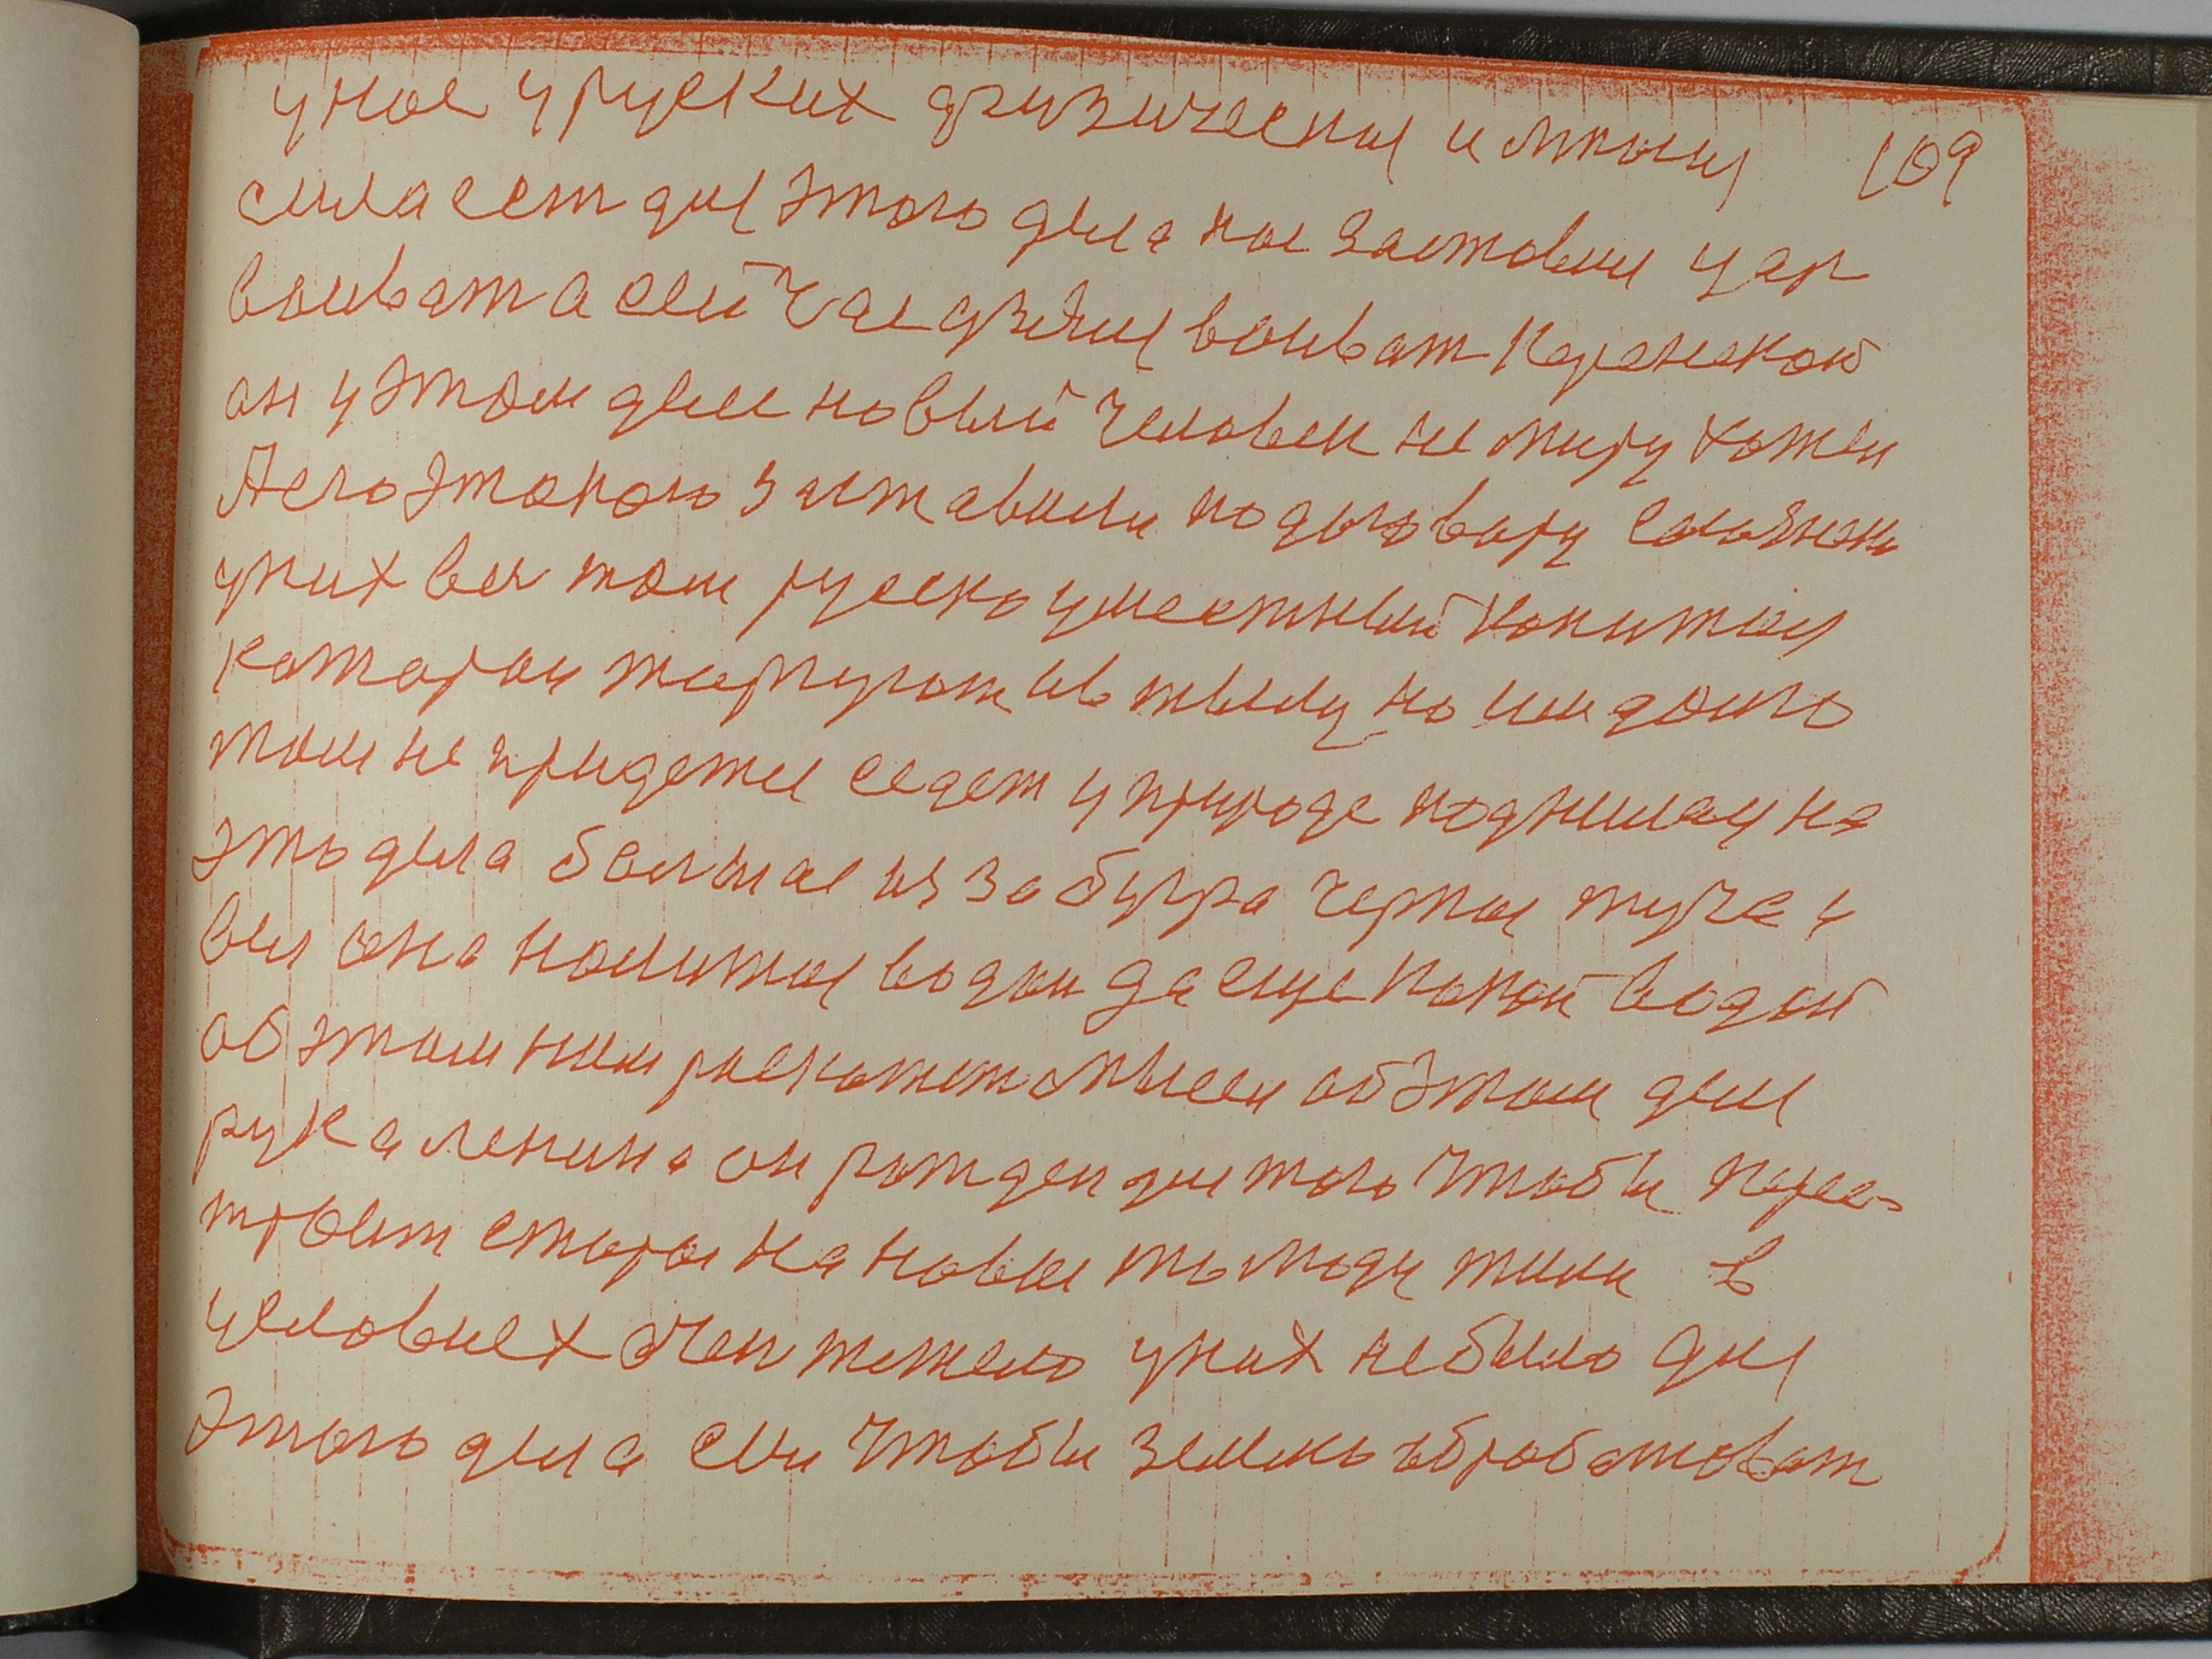 у нас у руских физическая и мпаия 109
сила ест для этого дела нас заставил цар
воиват а сейчас дзелил воиват Керенской
он у этом деле новый человек не миру хотел
А его этакого заставили по договору саюзнаки
у них вся там руско уместный копитал
катораи жертуют ив тылу но им долго
там не придетца седет у природе поднимаи на
это дела болшае из за бугра черная туча и
вся она налитая водои да еще какой водой
об этам нам раскажет мысли об этам деле
рука ленина он рожден для того чтобы перес-
троит стары на новые то люди жили в
человеках очен тяжело у них не было для
этого дела сил чтобы землю обработоват